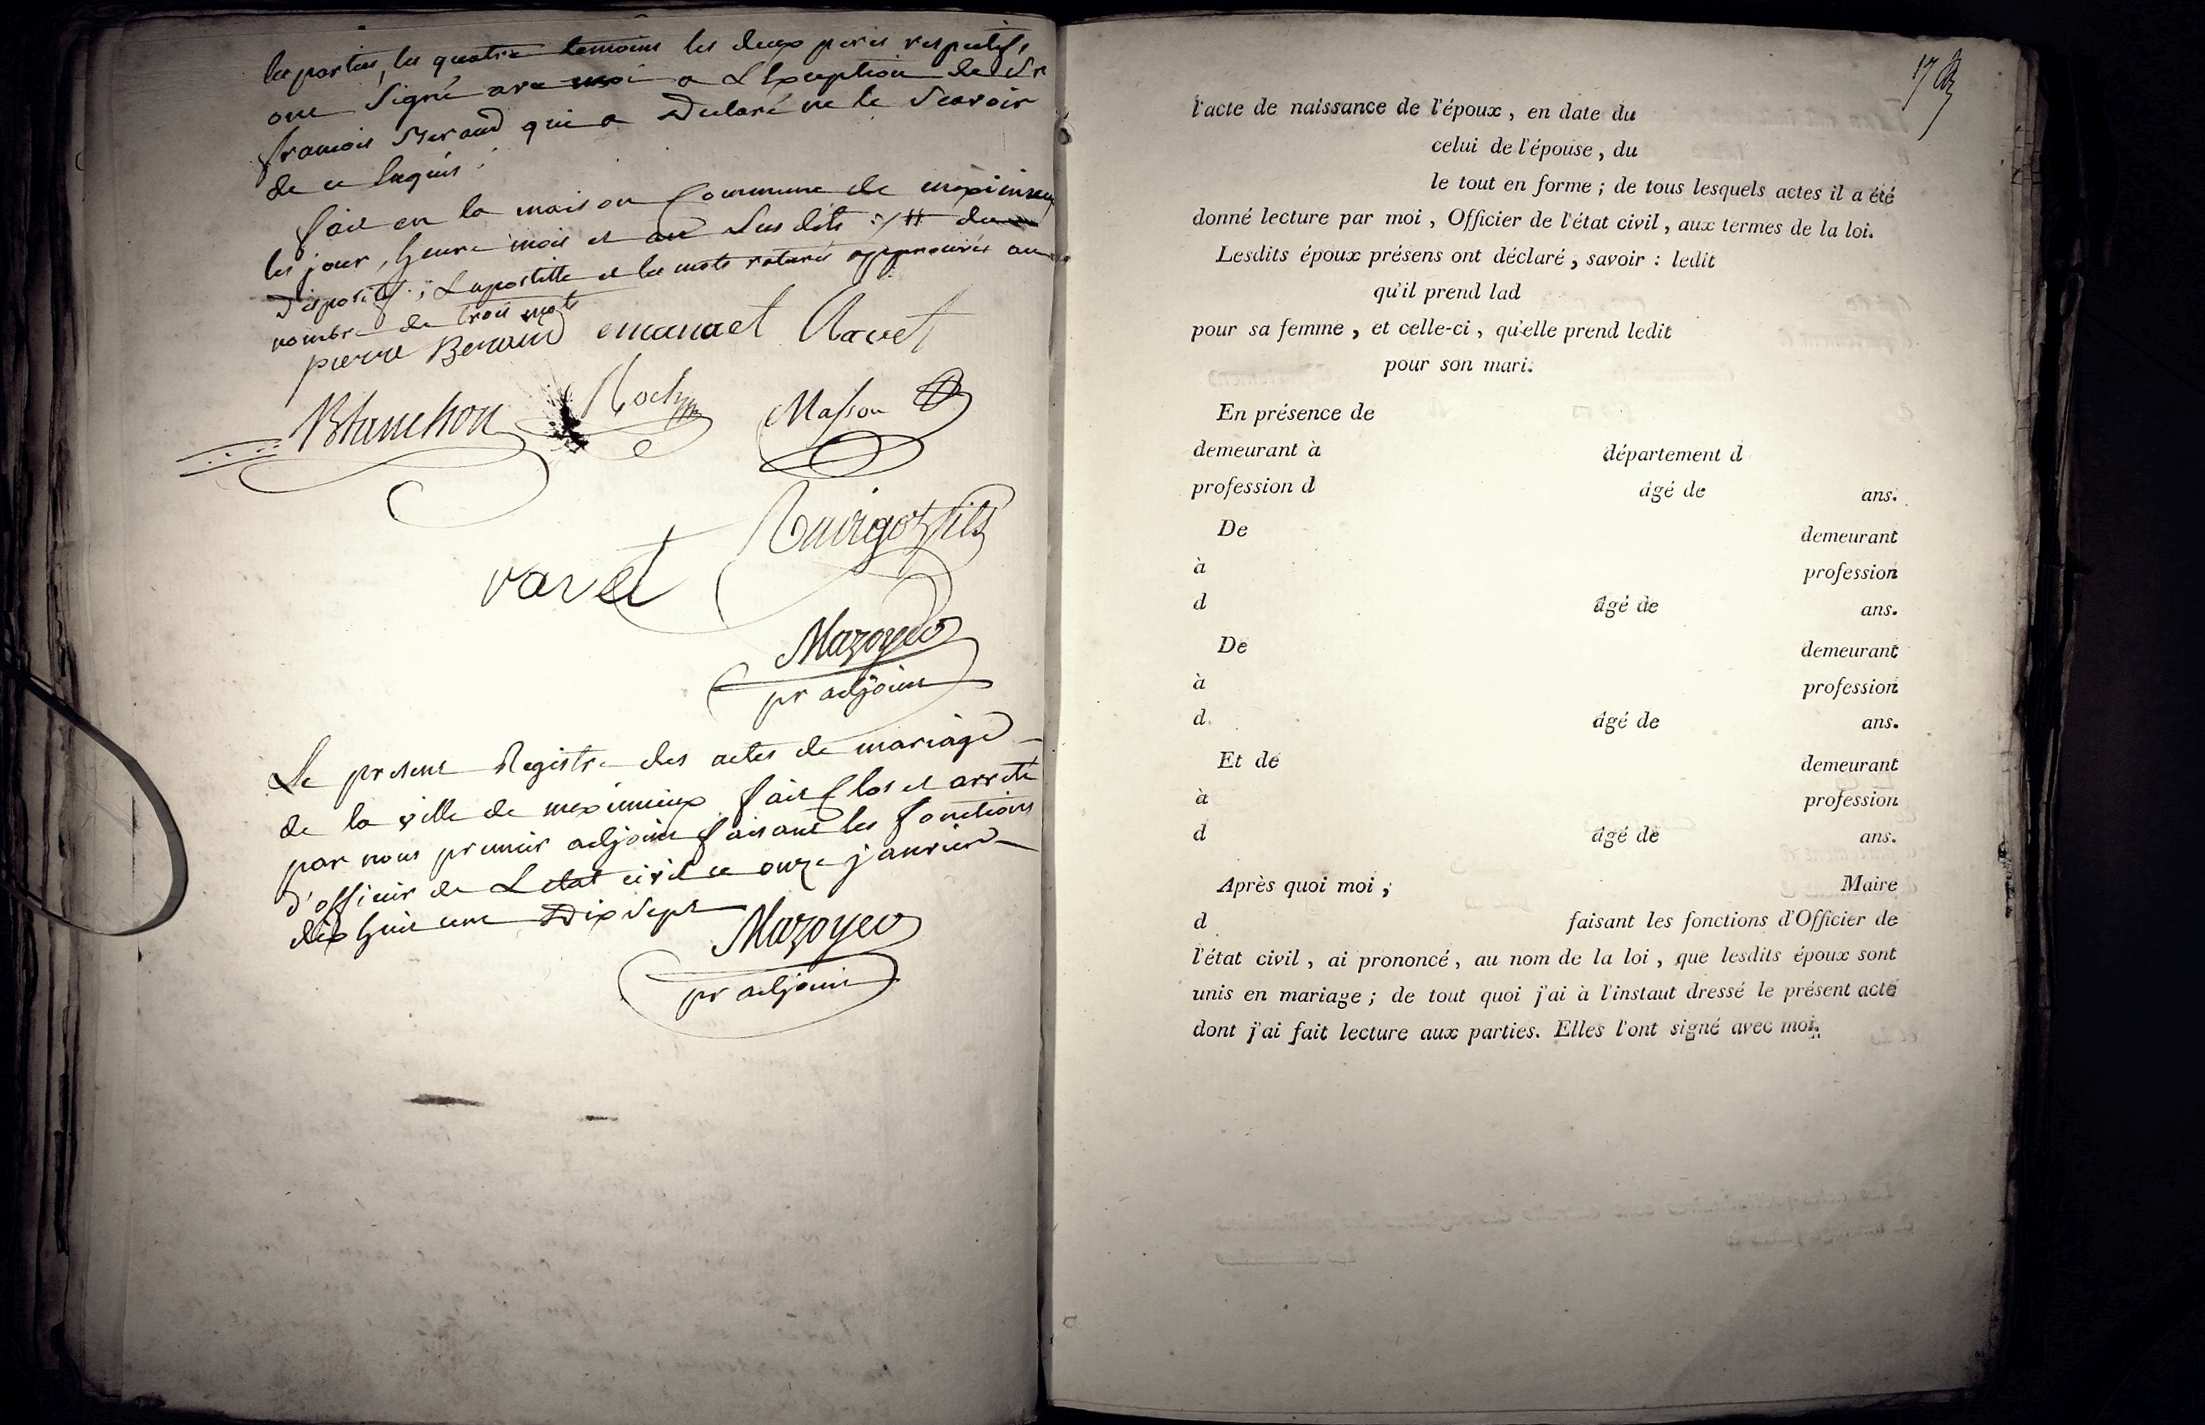 les parties, les quatre temoins les deux peres respectifs,
ont signé avec moi a L'exception de Sr
francois Beraud qui a Declaré ne le scavoir
de ce enquis.
fait en la maison Commune de meximieux
les jour, heure mois et an susdits
dispositif; Lapostille et les mots raturés approuvés au
nombre de trois mots
pierre Beraud emanuel Ravet
Blanchon Roch Masson
Ruivgoz fils
ravet
Mazoyer
pr adjoint
Le present Registre des actes de mariage
de la ville de meximieux fait Clos et arreté
par nous premier adjoint faisant les fonctions
d'officier de Letat civil ce onze janvier
dix huit cent Dix Sept
Mazoyer
pr adjoint
17
l'acte de naissance de l'époux, en date du
celui de l'épouse, du
le tout en forme ; de tous lesquels actes il a été
donné lecture par moi, Officier de l'état civil, aux termes de la loi.
Lesdits époux présens ont déclaré, savoir : ledit
qu'il prend lad
pour sa femme, et celle-ci, qu'elle prend ledit
pour son mari.
En présence de
demeurant à département d
profession d âgé de ans.
De demeurant
à profession
d âgé de ans.
De demeurant
à profession
d âgé de ans.
Et de demeurant
à profession
d âgé de ans.
Après quoi moi, Maire
d faisant les fonctions d'Officier de
l'état civil, ai prononcé, au nom de la loi, que lesdits époux sont
unis en mariage ; de tout quoi j'ai à l'instaut dressé le présent acte
dont j'ai fait lecture aux parties. Elles l'ont signé avec moi.